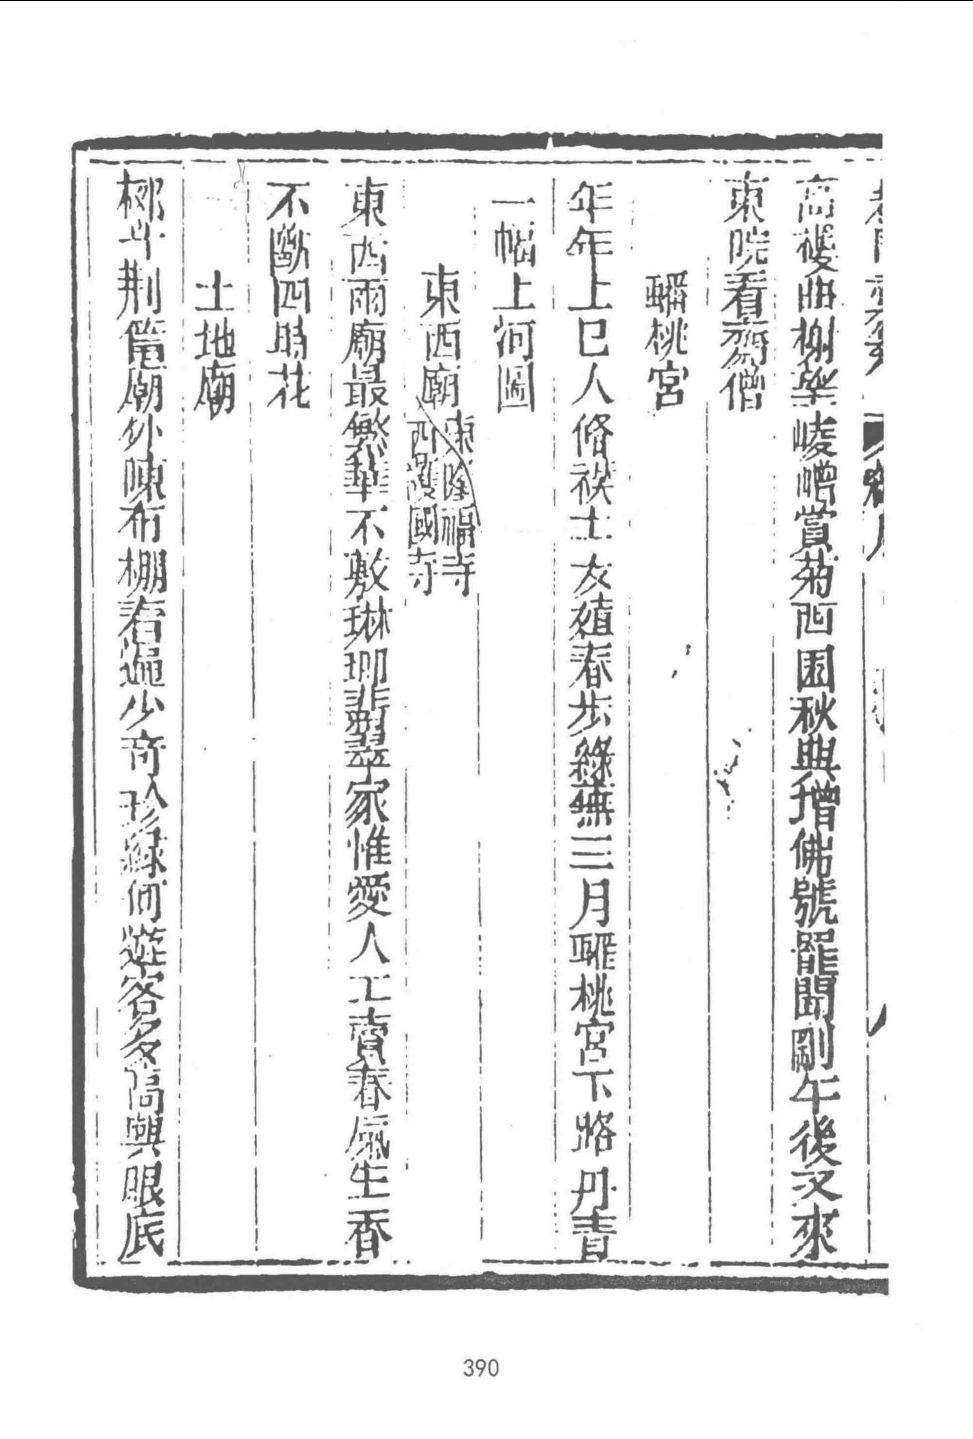 高樓曲榭勢崚嶒賞菊西園秋興增佛號罷聞剛午後又來
東院看齋僧
蟠桃宮
年年上巳人脩禊士女殖春步綠蕪三月蟠桃宮下路丹青
一幅上河圖
東西廟東隆福寺西護國寺
東西兩廟最繁華不數琳瑯翡翠家惟愛人工賣春風生香
不斷四時花
土地廟
柳斗荆筐廟外陳布棚看遍少奇珍緣何遊客多高興眼底
390